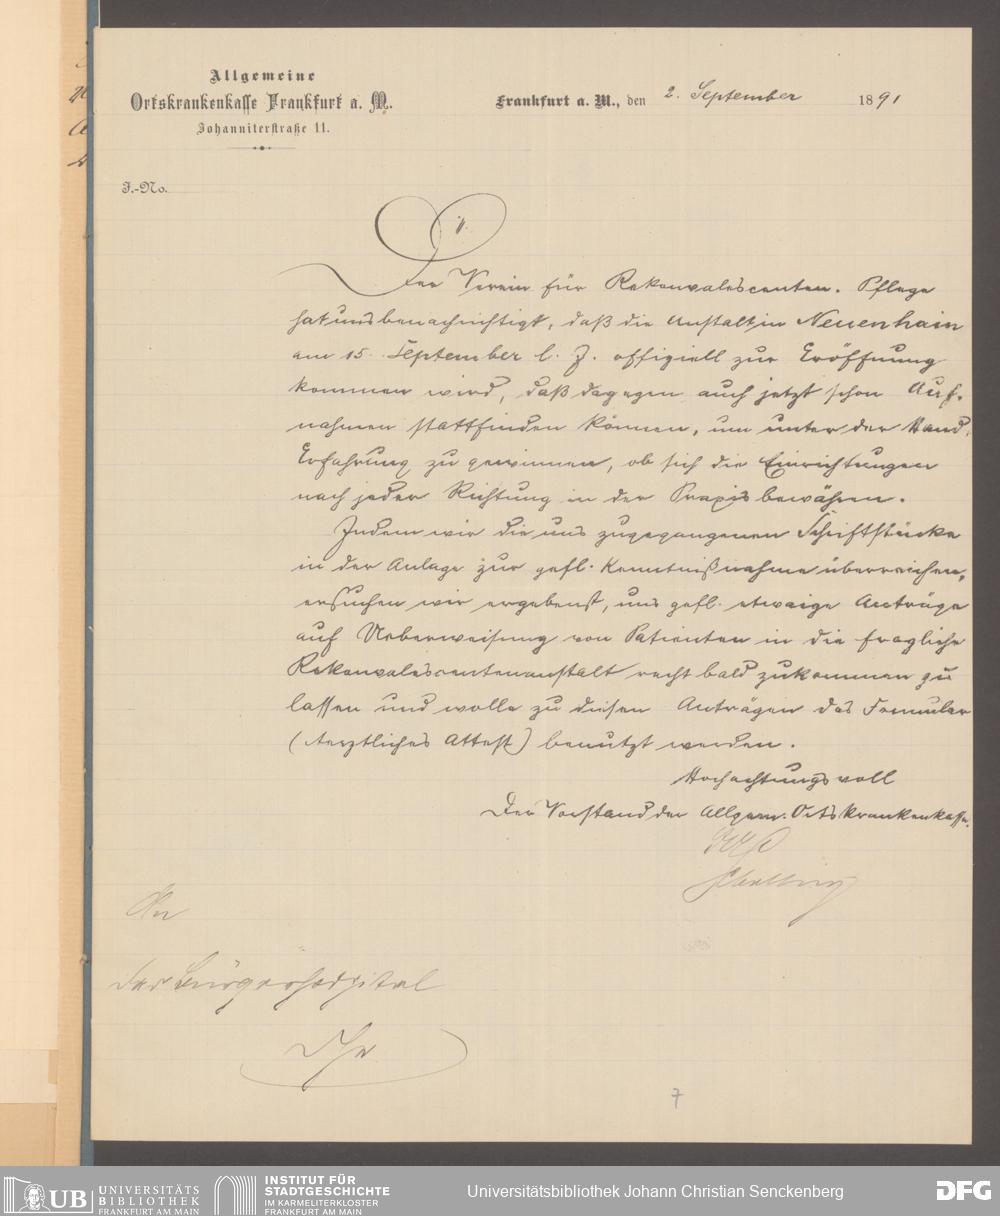 Allgemeine
Ortskrankenkasse Frankfurt a. M.
Johanniterstraße 11.
Frankfurt a. M., den 2. September 1891
J.-No.
Der Verein für Rekonvalescenten-Pflege
hat uns benachrichtigt, daß die Anstalt in Neuenhain
am 15. September l. J. offiziell zur Eröffnung
kommen wird, daß dagegen auch jetzt schon Auf-
nahmen stattfinden können, um unter der Hand
Erfahrung zu gewinnen, ob sich die Einrichtungen
nach jeder Richtung in der Praxis bewähren.
Indem wir die uns zugegangenen Schriftstücke
in der Anlage zur gefl. Kenntnißnahme überreichen,
ersuchen wir ergebenst, uns gefl. etwaige Anträge
auf Ueberweisung von Patienten in die fragliche
Rekonvalescentenanstalt recht bald zukommen zu
lassen und wolle zu diesen Anträgen das Formular
(Aerztliches Attest) benutzt werden.
Hochachtungsvoll
Der Vorstand der Allgem. Ortskrankenkasse.
An
das Bürgerhospital
Hier
7
UB UNIVERSITÄTS
BIBLIOTHEK
FRANKFURT AM MAIN
INSTITUT FÜR
STADTGESCHICHTE
IM KARMELITERKLOSTER
FRANKFURT AM MAIN
Universitätsbibliothek Johann Christian Senckenberg
DFG